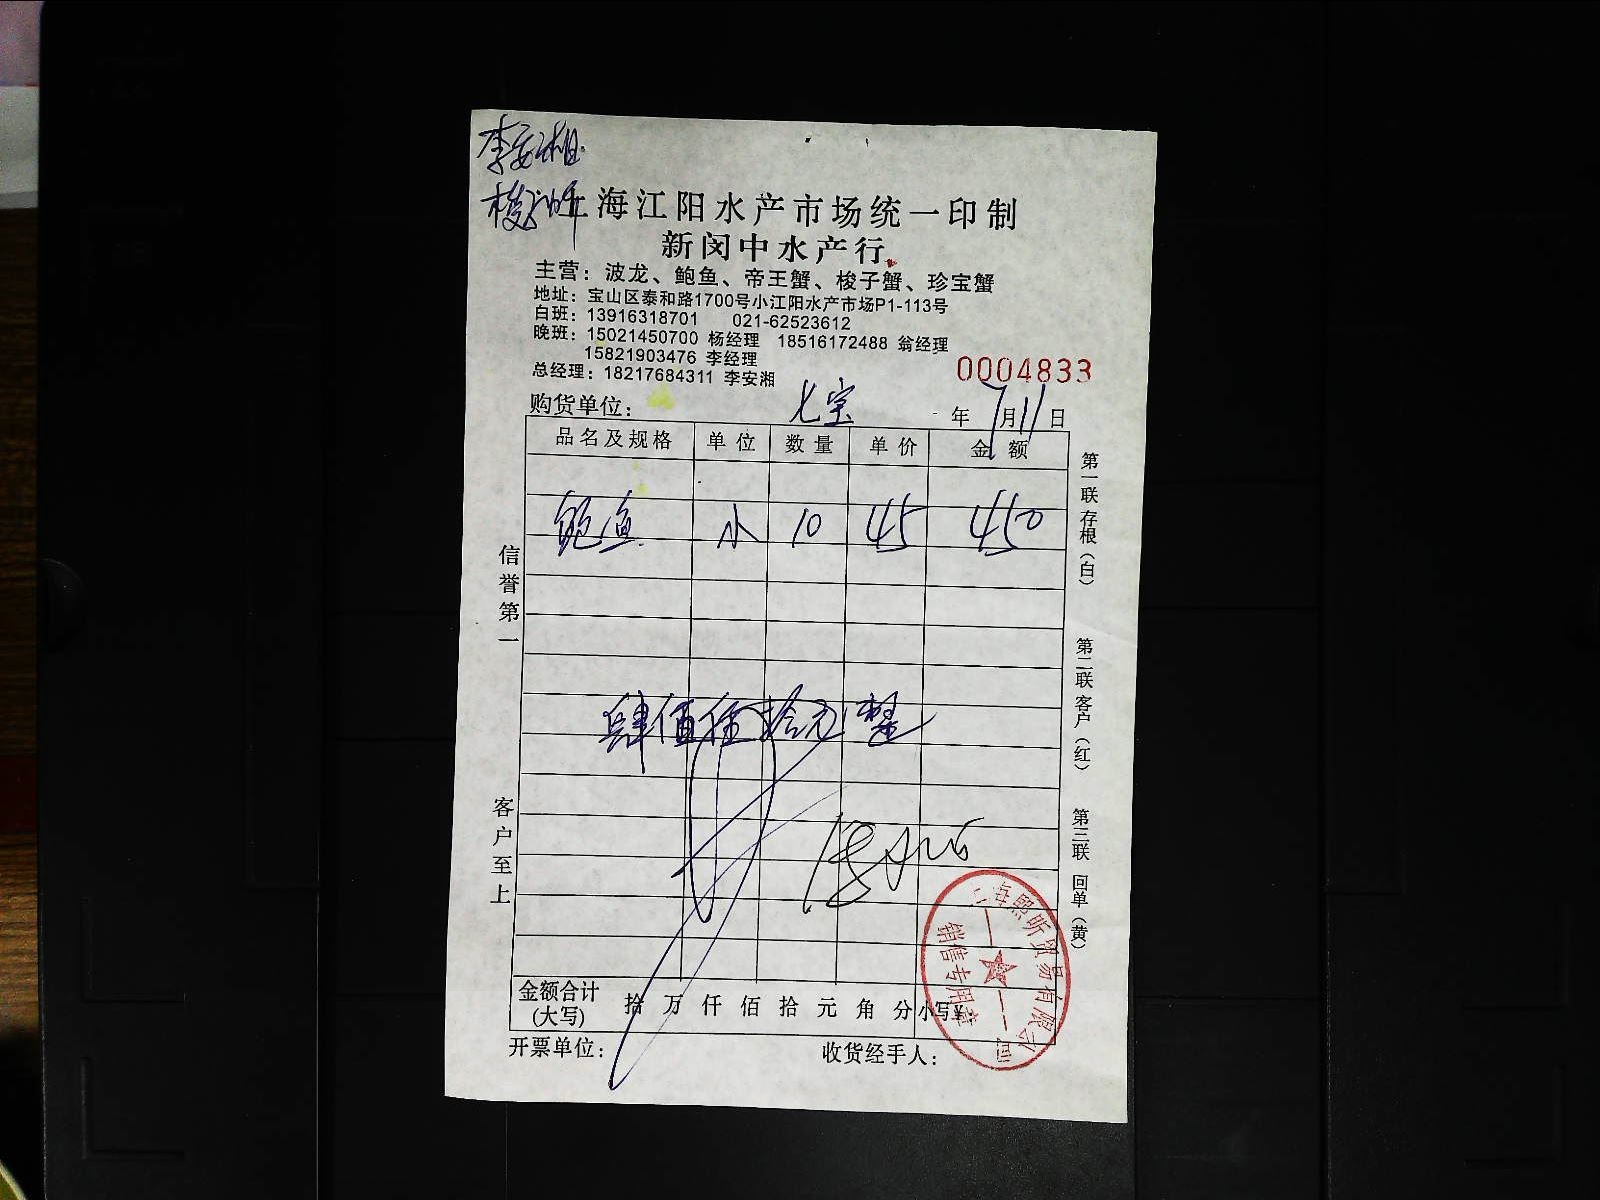 李安湘
上海江阳水产市场统一印制
新闵中水产行
主营：波龙、鲍鱼、帝王蟹、梭子蟹、珍宝蟹
地址：宝山区泰和路1700号小江阳水产市场P1-113号
白班：13916318701 021-62523612
晚班：15021450700 杨经理 18516172488 翁经理
15821903476 李经理
总经理：18217684311 李安湘
0004833
购货单位： 七宝 年7月11日
品名及规格 单位 数量 单价 金额
鲍鱼 小 10 45 450
肆佰伍拾元整
金额合计(大写) 拾 万 仟 佰 拾 元 角 分 小写¥:
开票单位： 收货经手人：
信誉第一
客户至上
第一联 存根（白）
第二联 客户（红）
第三联 回单（黄）
上海熙昕贸易有限公司
销售专用章